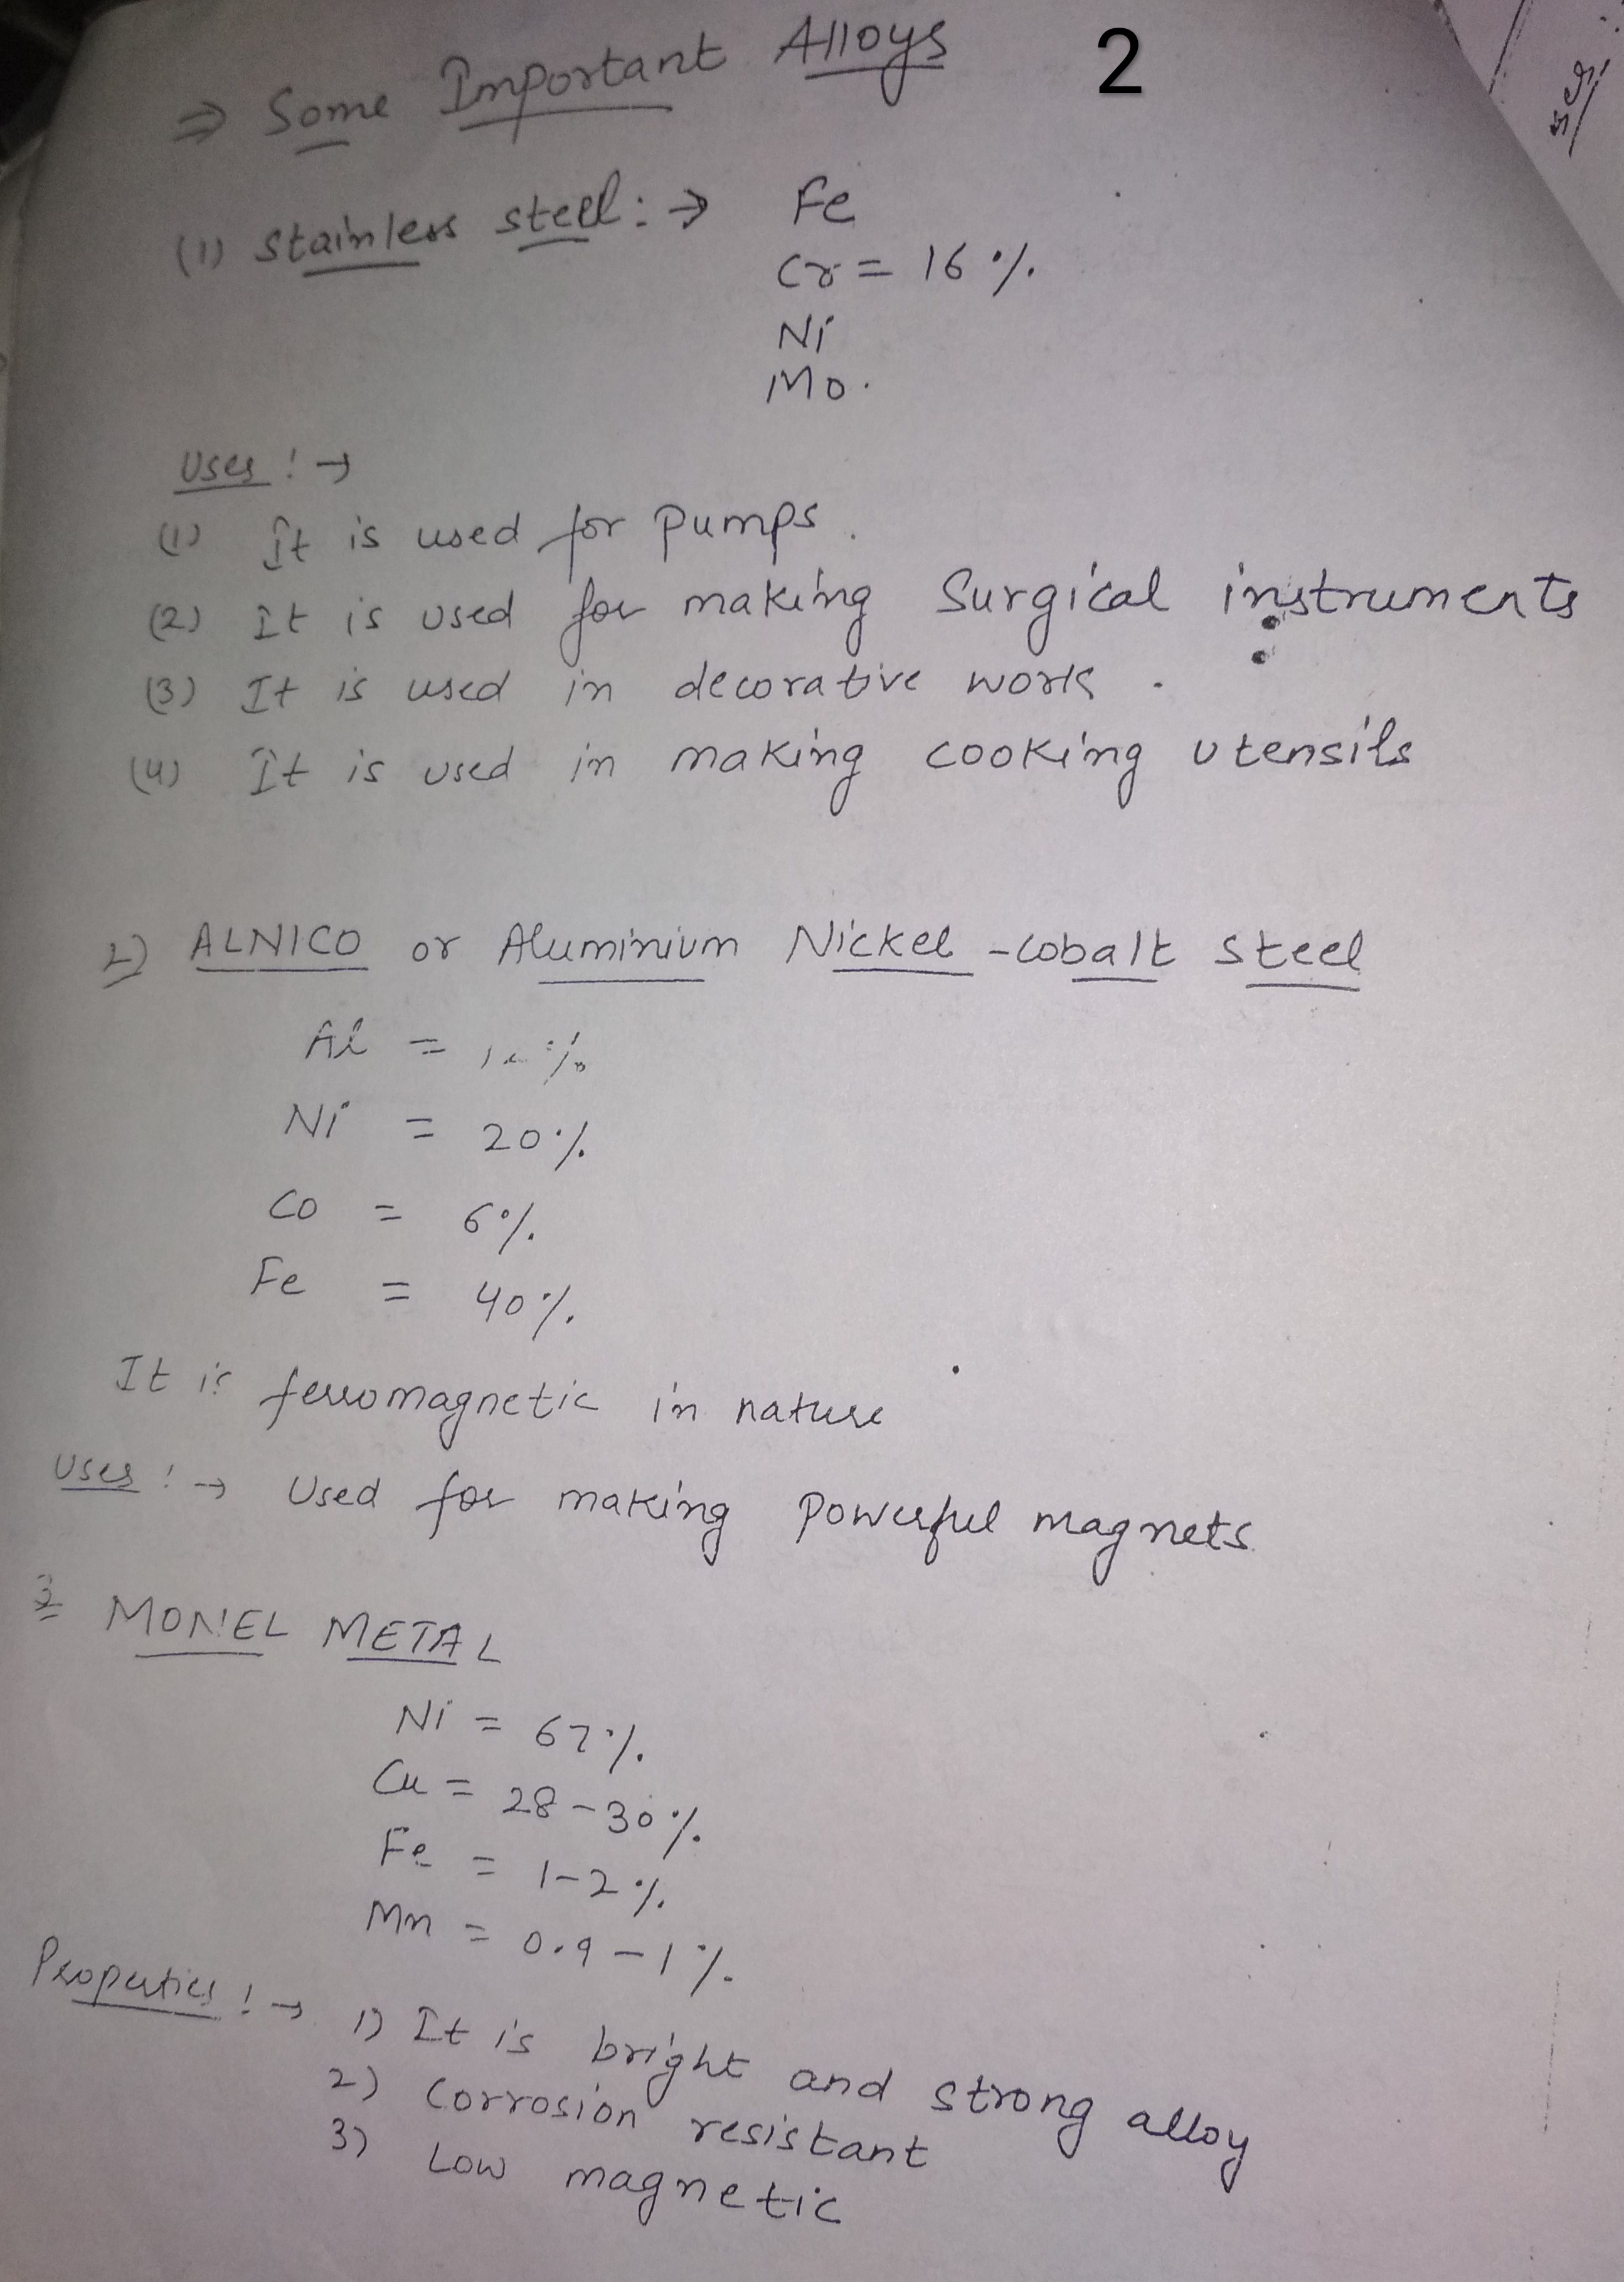 ⇒ Some Important Alloys 2
(1) Stainless steel :→ Fe
Cr = 16 %
Ni
Mo.
Uses !→
(1) It is used for Pumps.
(2) It is used for making Surgical instruments
(3) It is used in decorative work.
(4) It is used in making cooking utensils
2) ALNICO or Aluminium Nickel -cobalt steel
Al = %
Ni = 20%
CO = 6%
Fe = 40%
It is ferromagnetic in nature
Uses !→ Used for making Powerful magnets
3 MONEL METAL
Ni = 67%
Cu = 28-30%
Fe = 1-2%
Mn = 0.9-1%
Properties !→ 1) It is bright and strong alloy
2) Corrosion resistant
3) Low magnetic